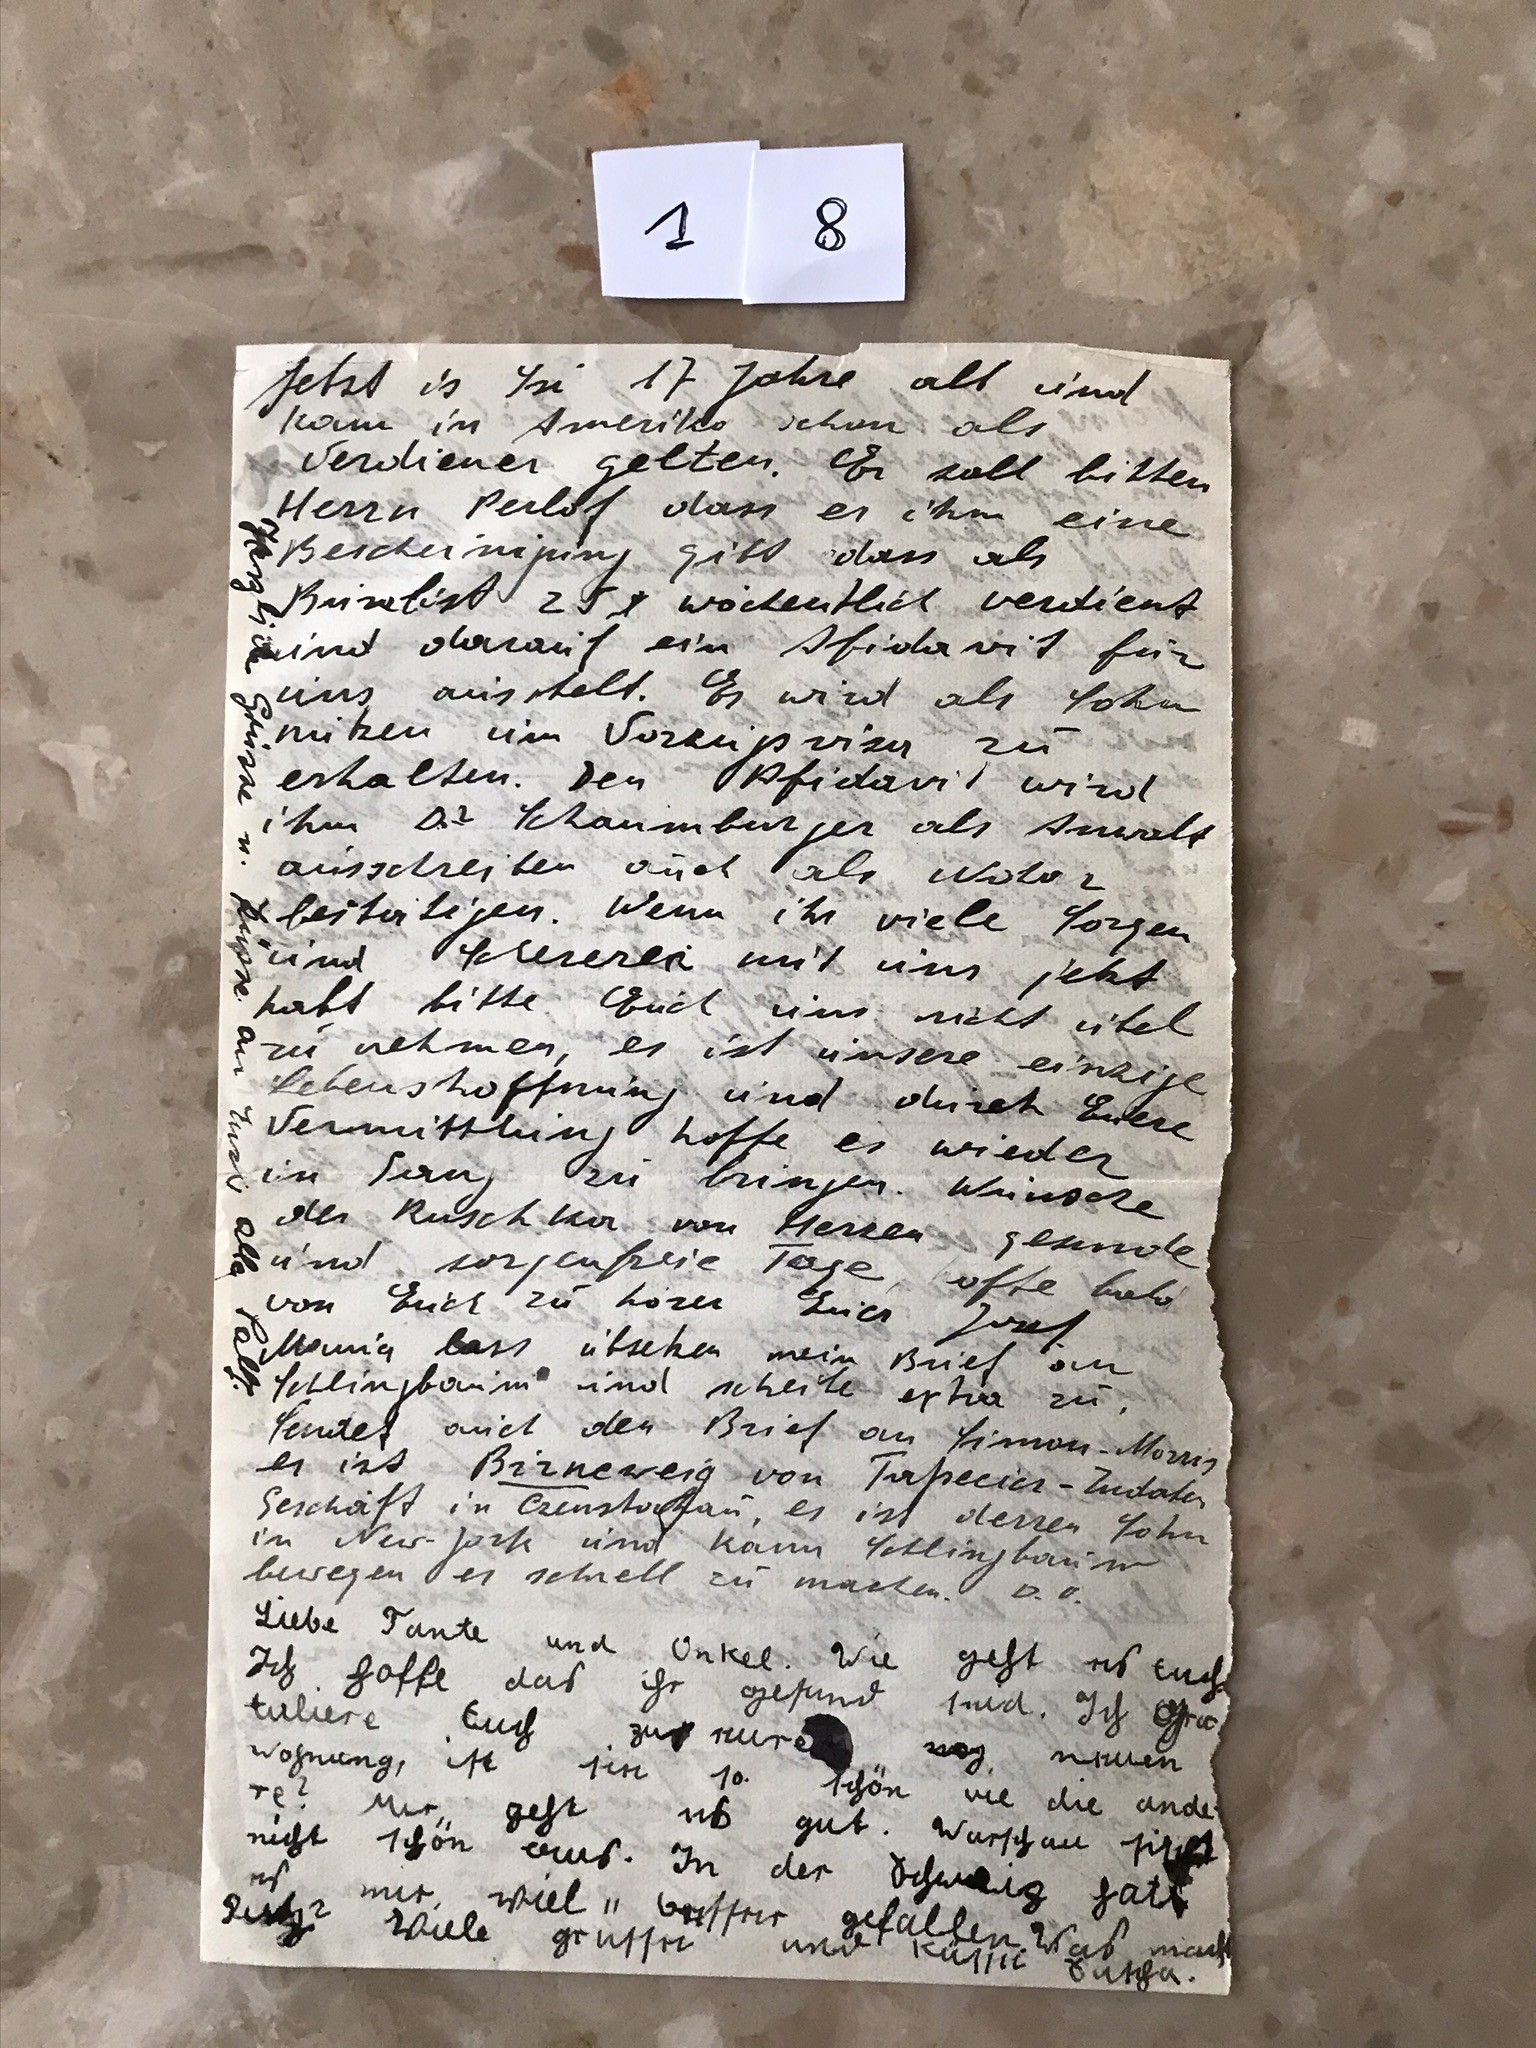 1 8
Jetzt is Isi 17 Jahre alt und
kann in Amerika schon als
Verdiener gelten. Er soll bitten
Herrn Perlof dass er ihm eine
Bescheinigung gibt dass als
25 $ wöchentlich verdient
und darauf ein Afidavit für
uns ausstelt. Es wird als Sohn
nützen um Vorzugsvisa zu
erhalten. Den Afidavit wird
ihm Dr Schaumburger als Anwalt
ausschreiben auch als Notar
bestatigen. Wenn ihr viele Sorgen
und Schererei mit uns jetzt
habt bitte Euch uns nicht übel
zu nehmen, es ist unsere einzige
Lebenshoffnung und durch Euere
Vermittlung hoffe es wieder
in Gang zu bringen. Wünsche
der Ruschka von Herzen gesunde
und sorgenfreie Tage, offe bald
von Euch zu hören Euer Josef
Mania lass übsetzen mein Brief an
Schlingbaum und scheibe extra zu,
Sendet auch den Brief an Simon-Morris
er ist Birneweig von Tapecier-Zudaten
Geschäft in Czenstochau, es ist dessen Sohn
in New-Jork und kann Schlingbaum
bewegen es schnell zu machen. D. O.
Liebe Tante und Onkel. Wie geht es Euch.
Ich hoffe das ihr gesund seid. Ich Gra-
tuliere Euch zur neuen
wohnung, ist sie so schön wie die ande-
re? Mir geht es gut. Warschau sieht
nicht schön aus. In der Schweiz hat
es mir viel besser gefallen. Was macht
Viele grüsse und Küsse
Herzliche Grüsse u. Küsse an Euch alle